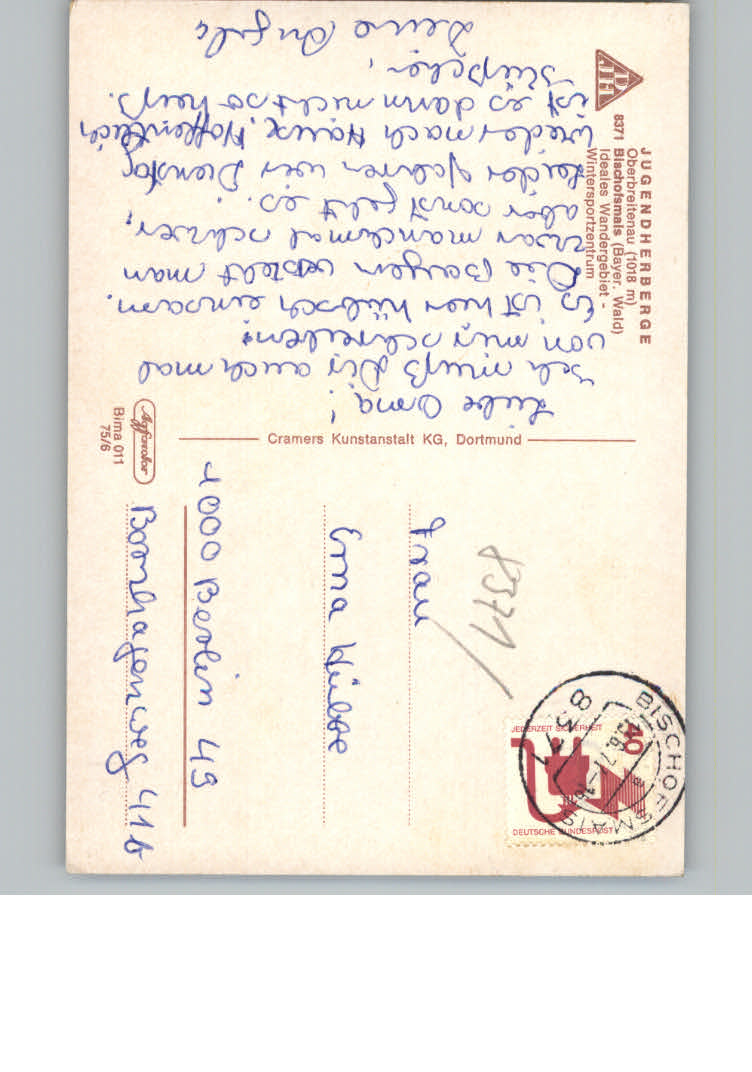 JUGENDHERBERGE
Oberbreitenau (1018 m)
8371 Bischofsmais (Bayer. Wald)
Ideales Wandergebiet -
Wintersportzentrum
DJH
Liebe Oma!
Ich muß Dir auch mal
von mir schreiben.
Es ist hier hübsch einsam.
Die Bayern versteht man
zwar manchmal schwer,
aber sonst geht es.
Leider fahren wir Dienstag
wieder nach Hause. Hoffentlich
ist es dann nicht so heiß.
Küßchen,
Deine Angela
Cramers Kunstanstalt KG, Dortmund
Agfacolor
Bima 011
75/6
8371
BISCHOFSMAIS
8371
JEDERZEIT SICHERHEIT
40
DEUTSCHE BUNDESPOST
Frau
Erna
1000 Berlin 49
41b